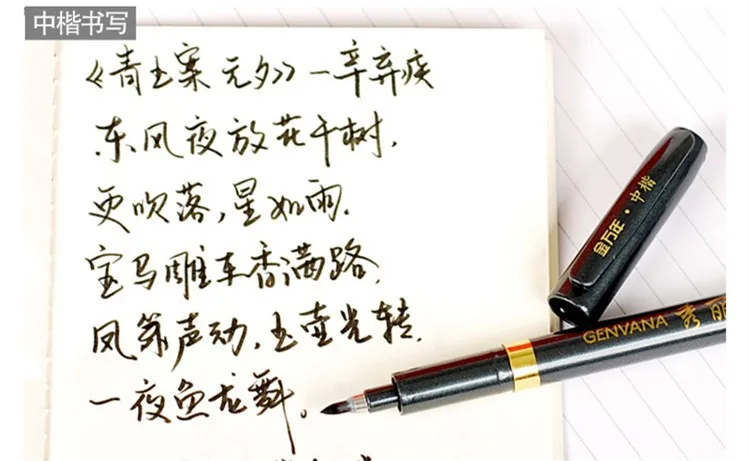 中楷书写
《青玉案 元夕》—辛弃疾
东风夜放花千树,
更吹落,星如雨.
宝马雕车香满路,
凤箫声动,玉壶光转,
一夜鱼龙舞。
金万年·中楷
GENVANA 秀丽